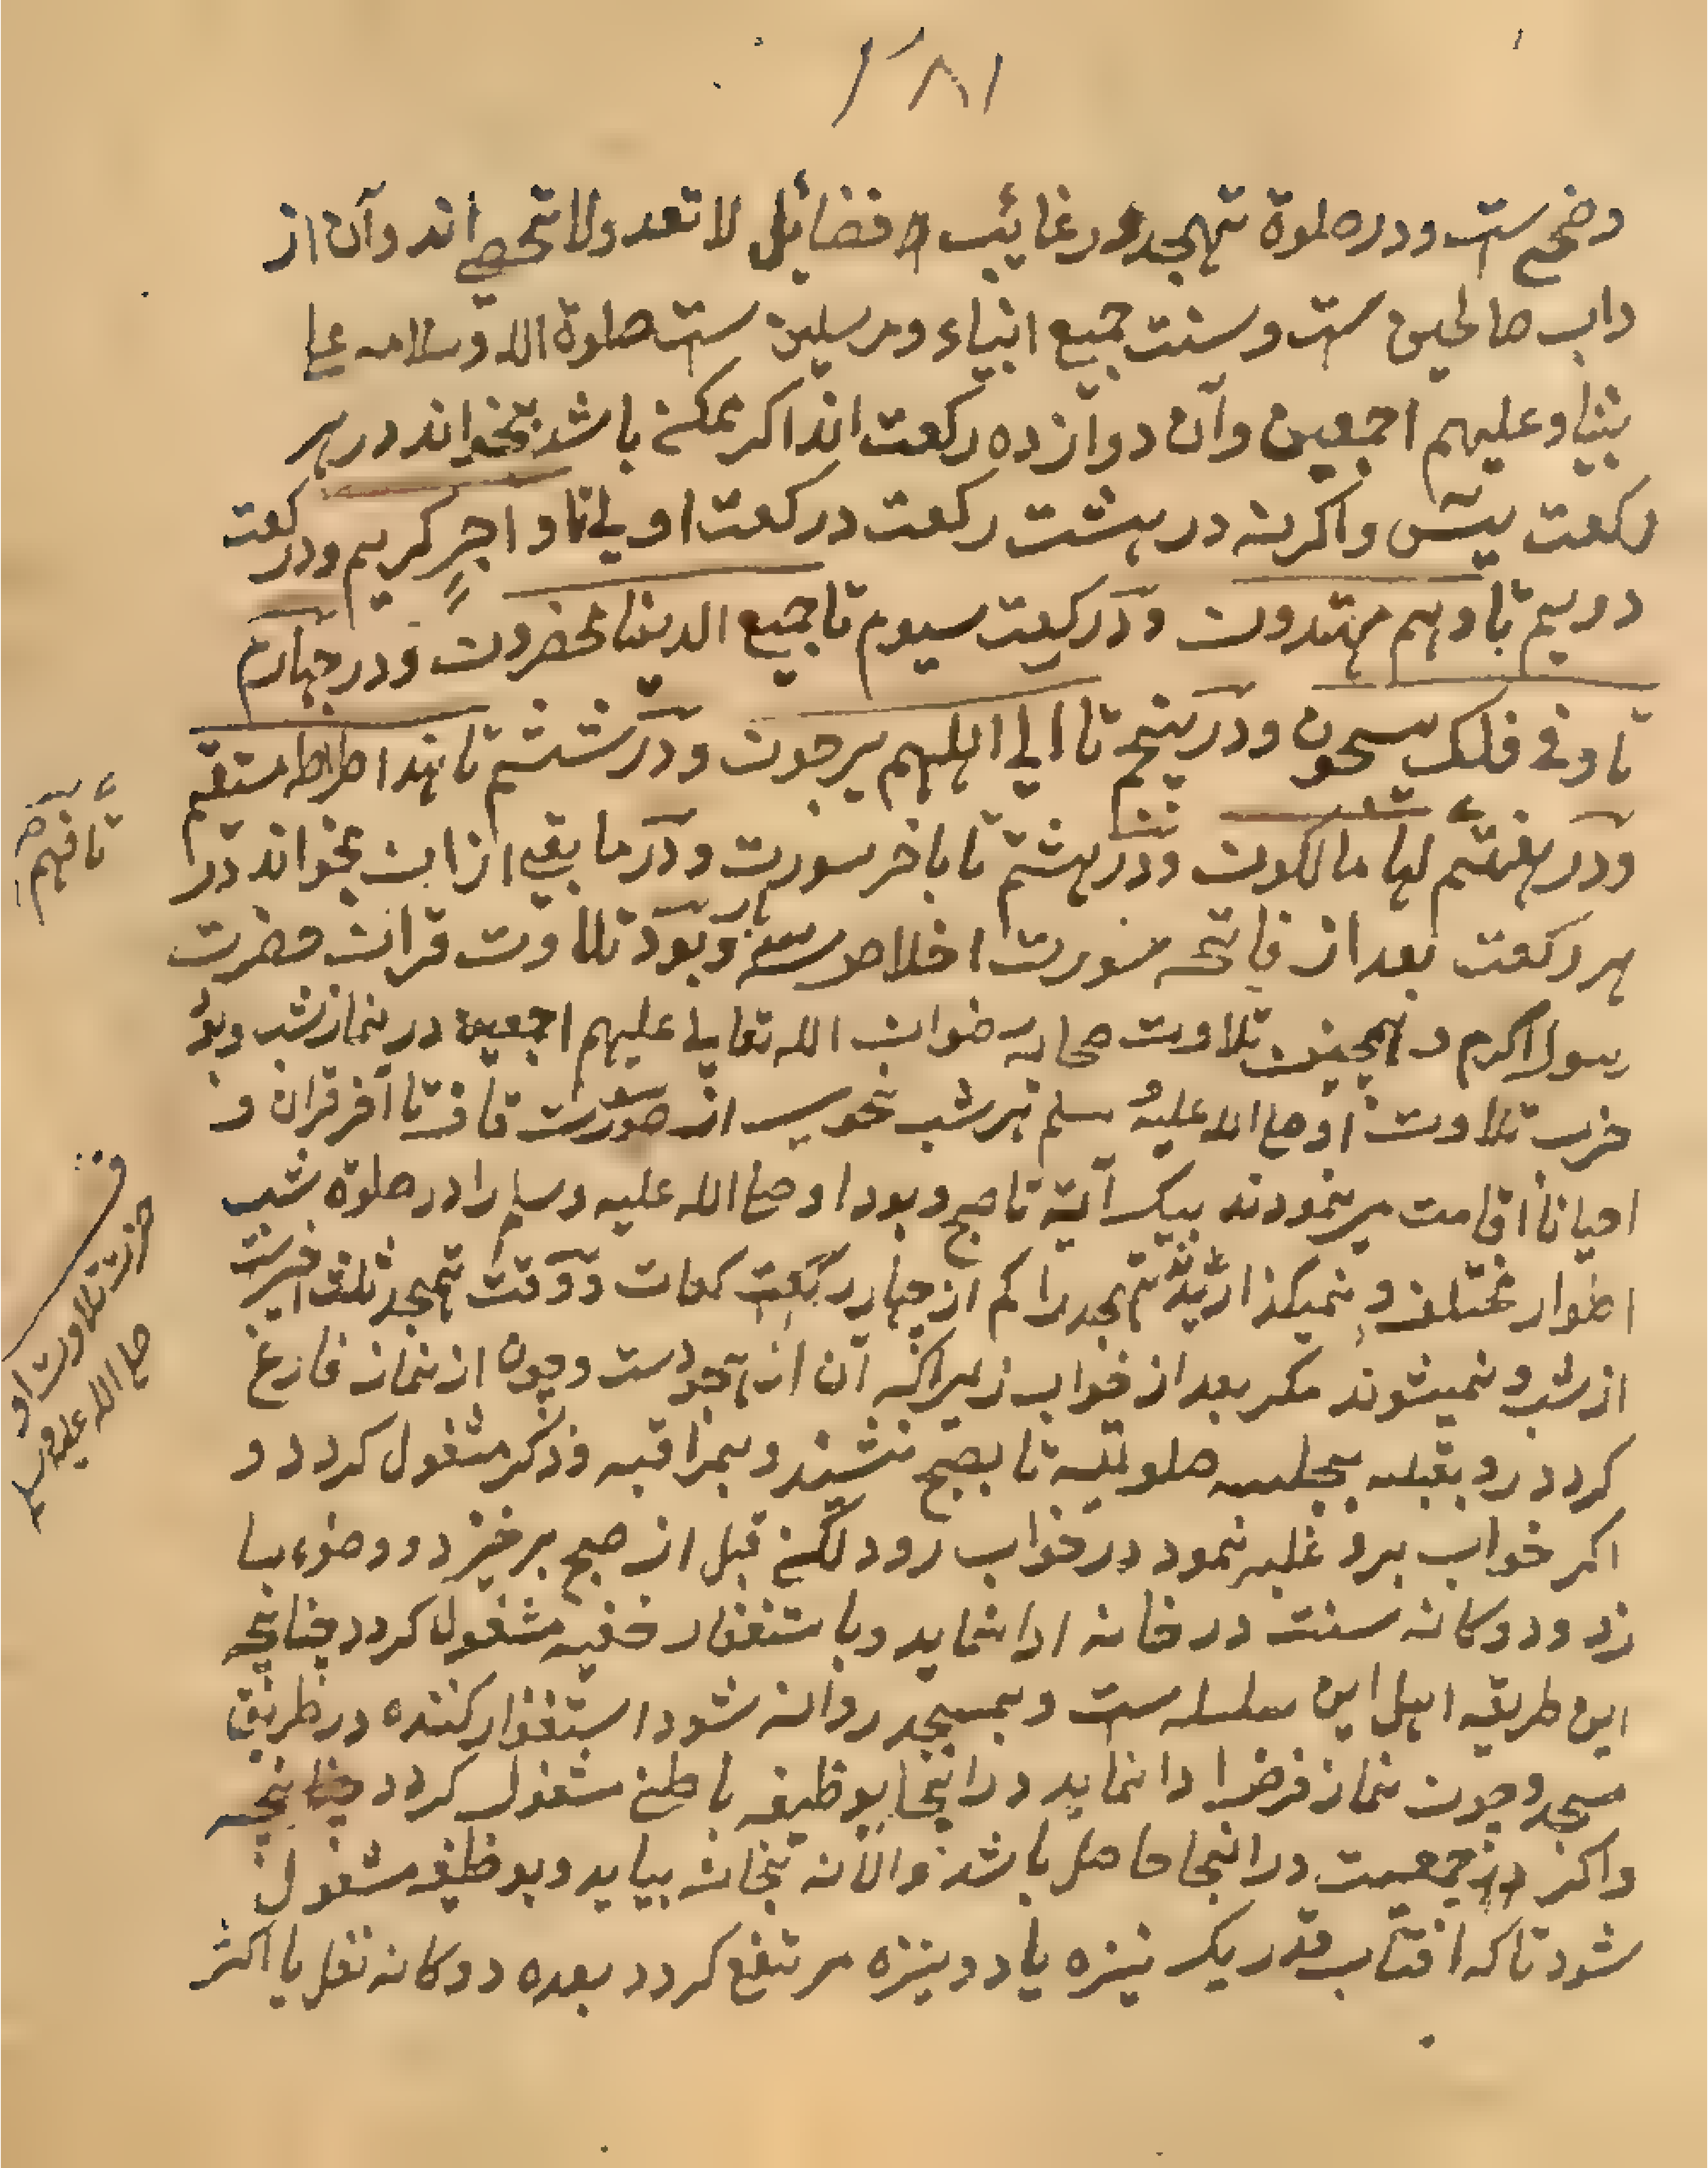 ۴۸۱
وضحی ست و در صلوة تهجد و رغایٔب و فضایٔل لا تعد ولا تحصے اند و آن از
داب صالحین ست و سنت جمیع انبیاء و مرسلین ست صلوة الله و سلامه علی
نبینا و علیهم اجمعین و آن دوازده رکعت اند اکر ممکن باشد بخواند در هر
رکعت یٰس و اکر نه در هشت رکعت در رکعت اولی تا و اجرٍ کریم و در رکعت
دویم تا و هم مهتدون و در رکعت سیوم تا جمیع الدینا محضرون و در چهارم
تا و فی فلک یسبحون و در پنجم تا الی اهلهم یرجعون و در ششم تا هذا صراط مستقیم
و در هفتم لها مالکون و در هشتم تا باخر سورت و در ما بقی ازان بخواند در
هر رکعت بعد از فاتحه سورت اخلاص سه و بود تلاوت قران حضرت
رسول اکرم و همچنین تلاوت صحابه رضوان الله تعالی علیهم اجمعین در نماز شب و بود
حزب تلاوت او صلی الله علیه و سلم هر شب از صورت قاف تا آخر قران و
احیانا اقامت میرنمودند بیک آیة تا صبح و بود او صلی الله علیه و سلم را در صلوة شب
اطوار مختلف و نمیکذارند تهجد را کم از چهار رکعت و وقت تهجد ثلث اخیرست
از شب و نمیشوند مکر بعد از خواب زیراکه آن از هجود ست و چون از نماز فارغ
کردد رو بقبله بجلسه صلوتیه تا بصبح نشیند و بمراقبه و ذکر مشغول کردد و
اکر خواب برو غلبه نمود در خواب رود لکن قبل از صبح برخیزد و وضوء سا
زد و دوکانه سنت در خانه ادا نماید و باستغفار خفیه مشغول کردد چنانچه
این طریقه اهل این سلسله ست و بمسجد روانه شود استغفار کننده در طریق
مسجد و چون نماز فرض ادا نماید در انجا بوظیفه باطن مشغول کردد چنانچه
و اکر در جمعیت در انجا حاصل باشد و الا نه بخانه بیاید و بوظیفه مشغول
شود تا که افتاب قدر یک نیزه یا دو نیزه مرتفع کردد بعده دوکانه نفل یا اکثر
تا فهم
حزب تلاوت او
صلی الله علیه وسلم